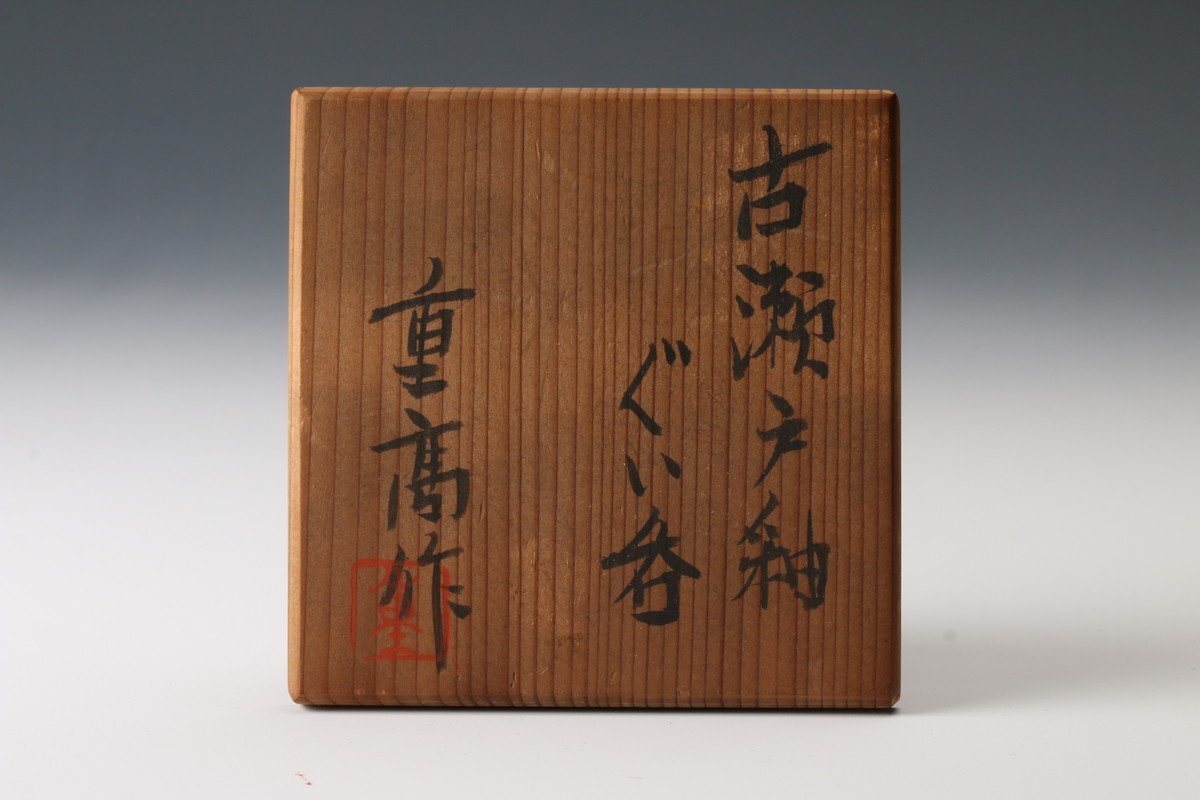 古瀬戸釉
ぐい呑
重高作